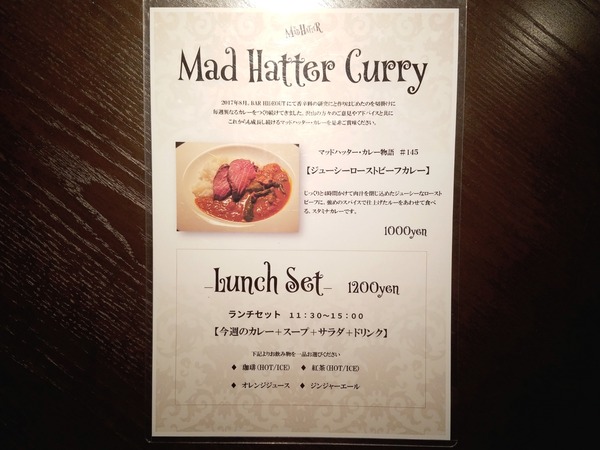 Mad HatteR
Mad Hatter Curry
2017年8月、BAR HIDEOUTにて香辛料の研究にと作りはじめたのを切掛けに
毎週異なるカレーをつくり続けてきました。沢山の方々のご意見やアドバイスと共に
これからも成長し続けるマッドハッター・カレーを是非ご賞味ください。
マッドハッター・カレー物語 #145
【ジューシーローストビーフカレー】
じっくりと4時間かけて肉汁を閉じ込めたジューシーなロースト
ビーフに、強めのスパイスで仕上げたルーをあわせて食べ
る、スタミナカレーです。
1000yen
Lunch Set 1200yen
ランチセット 11：30〜15：00
【今週のカレー＋スープ＋サラダ＋ドリンク】
下記よりお飲み物を一品お選びください
♦ 珈琲(HOT/ICE) ♦ 紅茶(HOT/ICE)
♦ オレンジジュース ♦ ジンジャーエール